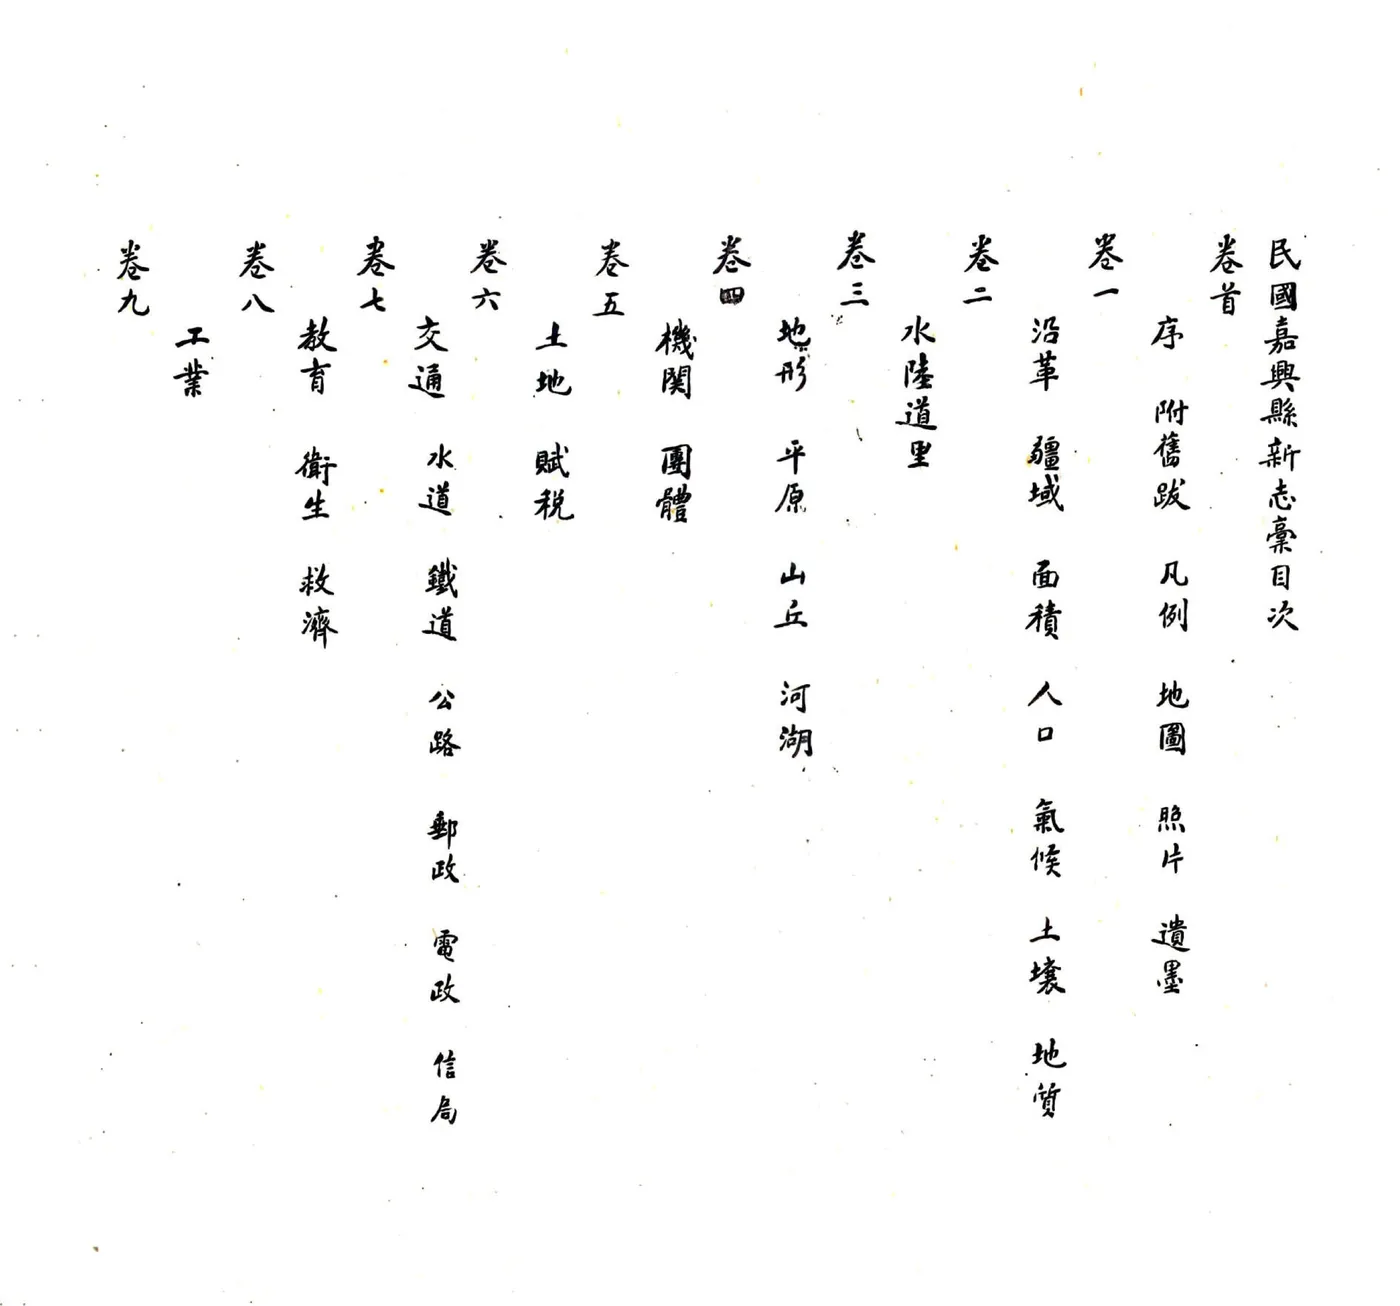 民國嘉興縣新志稾目次
卷首
序 附舊跋 凡例 地圖 照片 遺墨
卷一
沿革 疆域 面積 人口 氣候 土壤 地質
卷二
水陸道里
卷三
地形 平原 山丘 河湖
卷四
機関 團體
卷五
土地 賦税
卷六
交通 水道 鐵道 公路 郵政 電政 信局
卷七
教育 衛生 救濟
卷八
工業
卷九